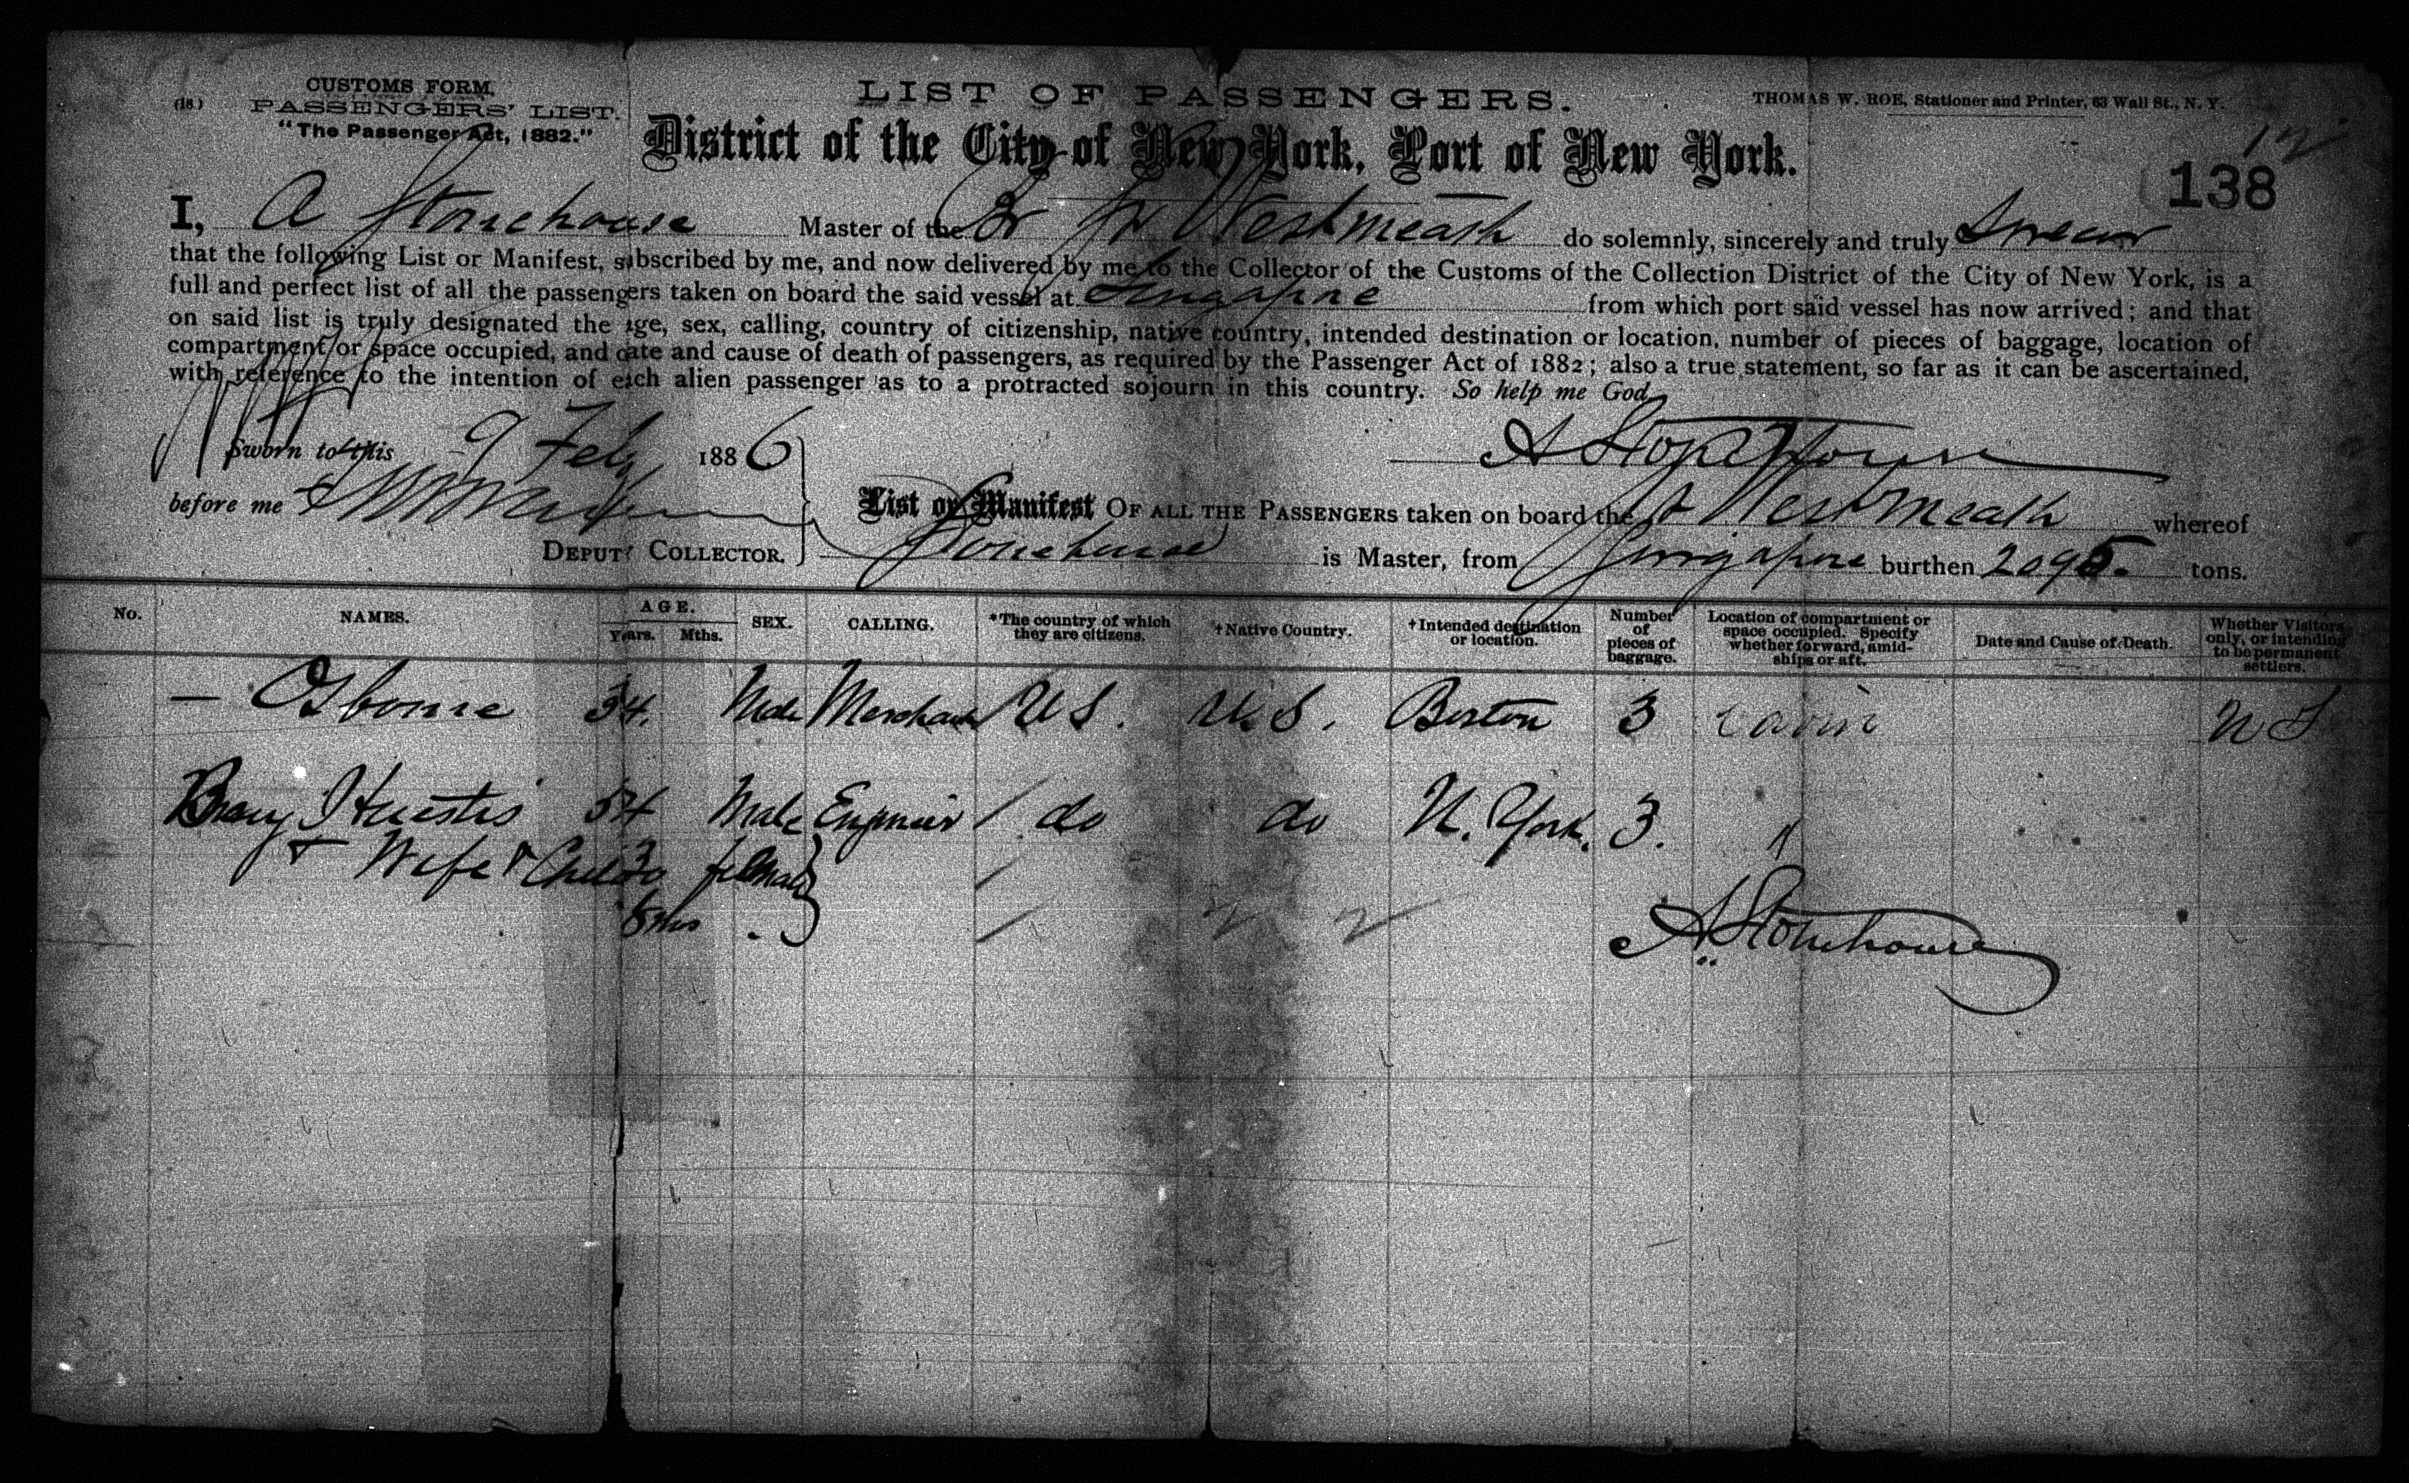 CUSTOMS FORM.
(18.) PASSENGERS' LIST.
"The Passenger Act, 1882."
LIST OF PASSENGERS.
THOMAS W. ROE, Stationer and Printer, 63 Wall St., N. Y.
District of the City of New York, Port of New York.
138
I, A Stonehouse Master of the Br Str Westmeath do solemnly, sincerely and truly Swear
that the following List or Manifest, subscribed by me, and now delivered by me to the Collector of the Customs of the Collection District of the City of New York, is a
full and perfect list of all the passengers taken on board the said vessel at Singapore from which port said vessel has now arrived; and that
on said list is truly designated the age, sex, calling, country of citizenship, native country, intended destination or location, number of pieces of baggage, location of
compartment or space occupied, and date and cause of death of passengers, as required by the Passenger Act of 1882; also a true statement, so far as it can be ascertained,
with reference to the intention of each alien passenger as to a protracted sojourn in this country. So help me God
Sworn to this 9 Feby 1886
A Stonehouse
before me
DEPUTY COLLECTOR.
List or Manifest OF ALL THE PASSENGERS taken on board the Westmeath whereof
Stonehouse is Master, from Singapore burthen 2095 tons.
No. NAMES. AGE. Years. Mths. SEX. CALLING. *The country of which they are citizens. †Native Country. †Intended destination or location. Number of pieces of baggage. Location of compartment or space occupied. Specify whether forward, amidships or aft. Date and Cause of Death. Whether Visitors only, or intending to be permanent settlers.
— Osborne 34. Male Merchant U S. U.S. Boston 3 Cabin
Huestis 34 Male Engineer do do N. York. 3. "
+ Wife + Child 30 female
8 mos
A Stonehouse